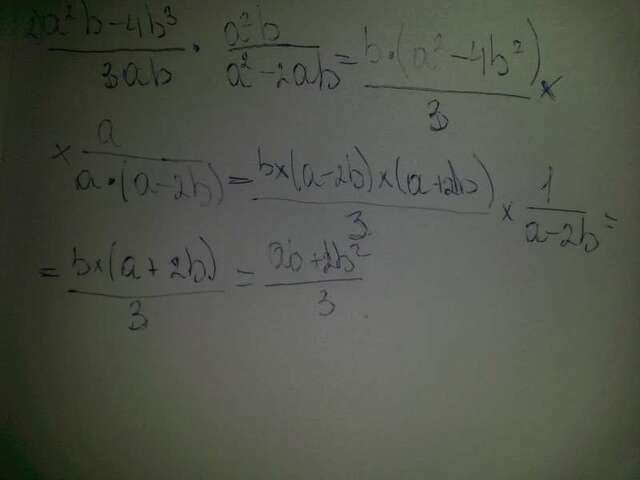 2a²b-4b³/3ab · a²b/a²-2ab = b·(a²-4b²)/3 ×
× a/a·(a-2b) = b×(a-2b)×(a+2b)/3 × 1/a-2b =
= b×(a+2b)/3 = ab+2b²/3